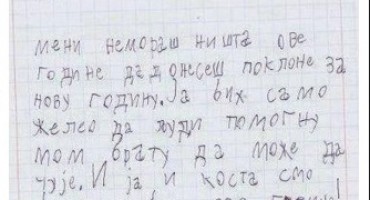 мени немораш ништа ове
године да донесеш поклоне за
нову годину. Ја бих само
желео да људи помогну
мом брату да може да
чује. И ја и коста смо